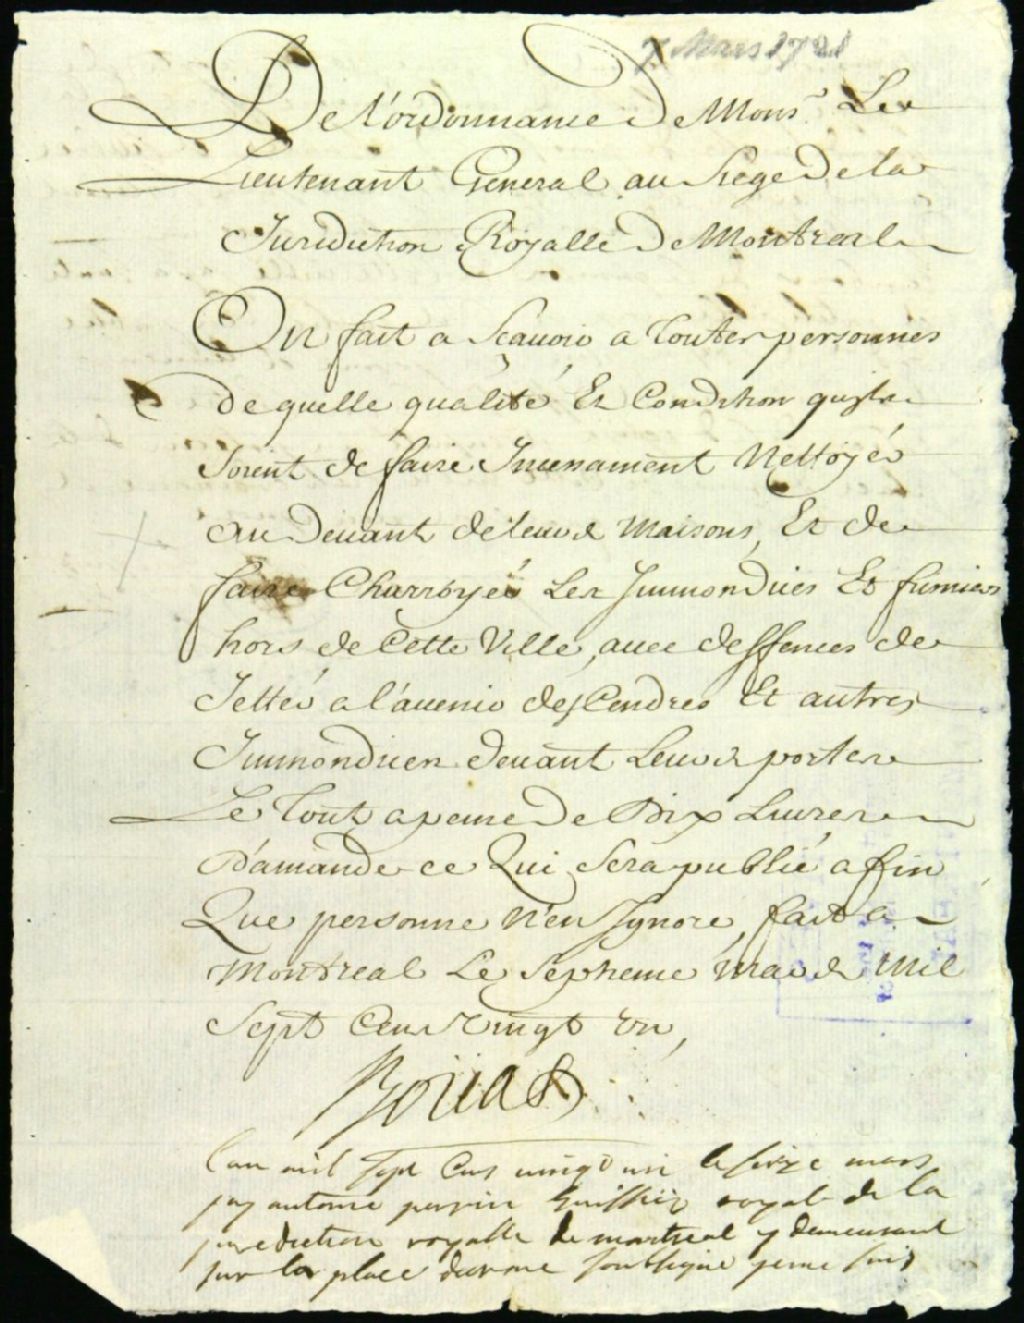 7 Mars 1721
De l'ordonnance De Mons.r Le
Lieutenant General au Siege De la
Jurediction Royalle De Montreal
On fait a Scauoir a Toutes personnes
de quelle qualité Et Condition quils
soient de faire Incenament Nettoyér
au Deuant de leurs Maisons, Et de
faire Charroyér Les Immondices Et fumiers
hors de Cette Ville, auec deffences de
Jettér a l'auenir des Cendres Et autres
Immondices deuant Leurs portes
Le Tout a peine De Dix Liures
D'amande ce Qui Sera publié afin
Que personne N'en Ignore, fait a
Montreal Le Septieme Mars Mil
Sept Cens Vingt un,
Boüat
Lan mil sept Cens vingt un le seize mars
jay antoine perrin huissier royal de la
jurediction royalle de montreal y demeurant
sur la place darme soubsigné jeme suis